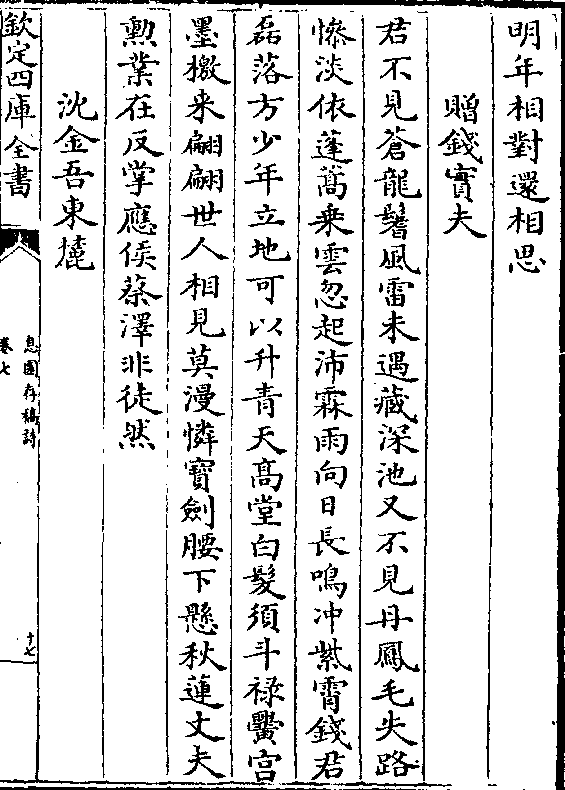 明年相對還相思
贈錢實夫
君不見蒼龍鬐風雷未遇藏深池又不見丹鳳毛失路
慘淡依蓬蒿乗雲忽起沛霖雨向日長鳴冲紫霄錢君
磊落方少年立地可以升青天高堂白髮須斗祿黌宫
墨檄来翩翩世人相見莫漫憐寳劍腰下懸秋蓮丈夫
勲業在反掌應侯蔡澤非徒然
沈金吾東麓
欽定四庫全書
息園存稿詩
卷七
十七